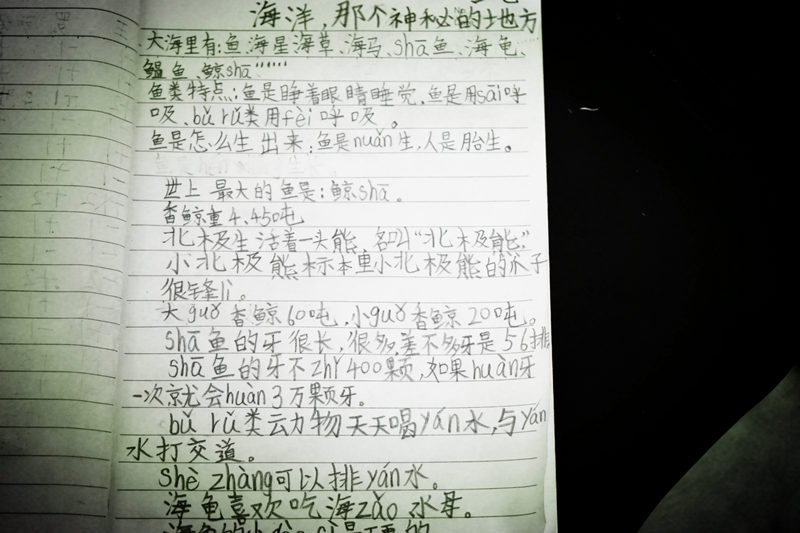 海洋，那个神秘的地方
大海里有：鱼、海星、海草、海马、shā鱼、海龟、
鳁鱼、鲸shā""""
鱼类特点：鱼是睁着眼睛睡觉，鱼是用sāi呼
吸、bǔ rǔ类用fèi呼吸。
鱼是怎么生出来；鱼是nuǎn生，人是胎生。
世上最大的鱼是：鲸shā。
香鲸重4.450吨
北极生活着一头熊，名叫“北极熊”
小北极熊标本里小北极熊的爪子
很锋lì。
大guǒ香鲸60吨，小guǒ香鲸20吨。
shā鱼的牙很长，很多差不多牙是56排
shā鱼的牙不zhǐ400颗，如果huàn牙
一次就会huàn3万颗牙。
bǔ rǔ类动物天天喝yán水，与yán
水打交道。
shè zhàng可以排yán水。
海龟喜欢吃海zǎo水母。
海龟的